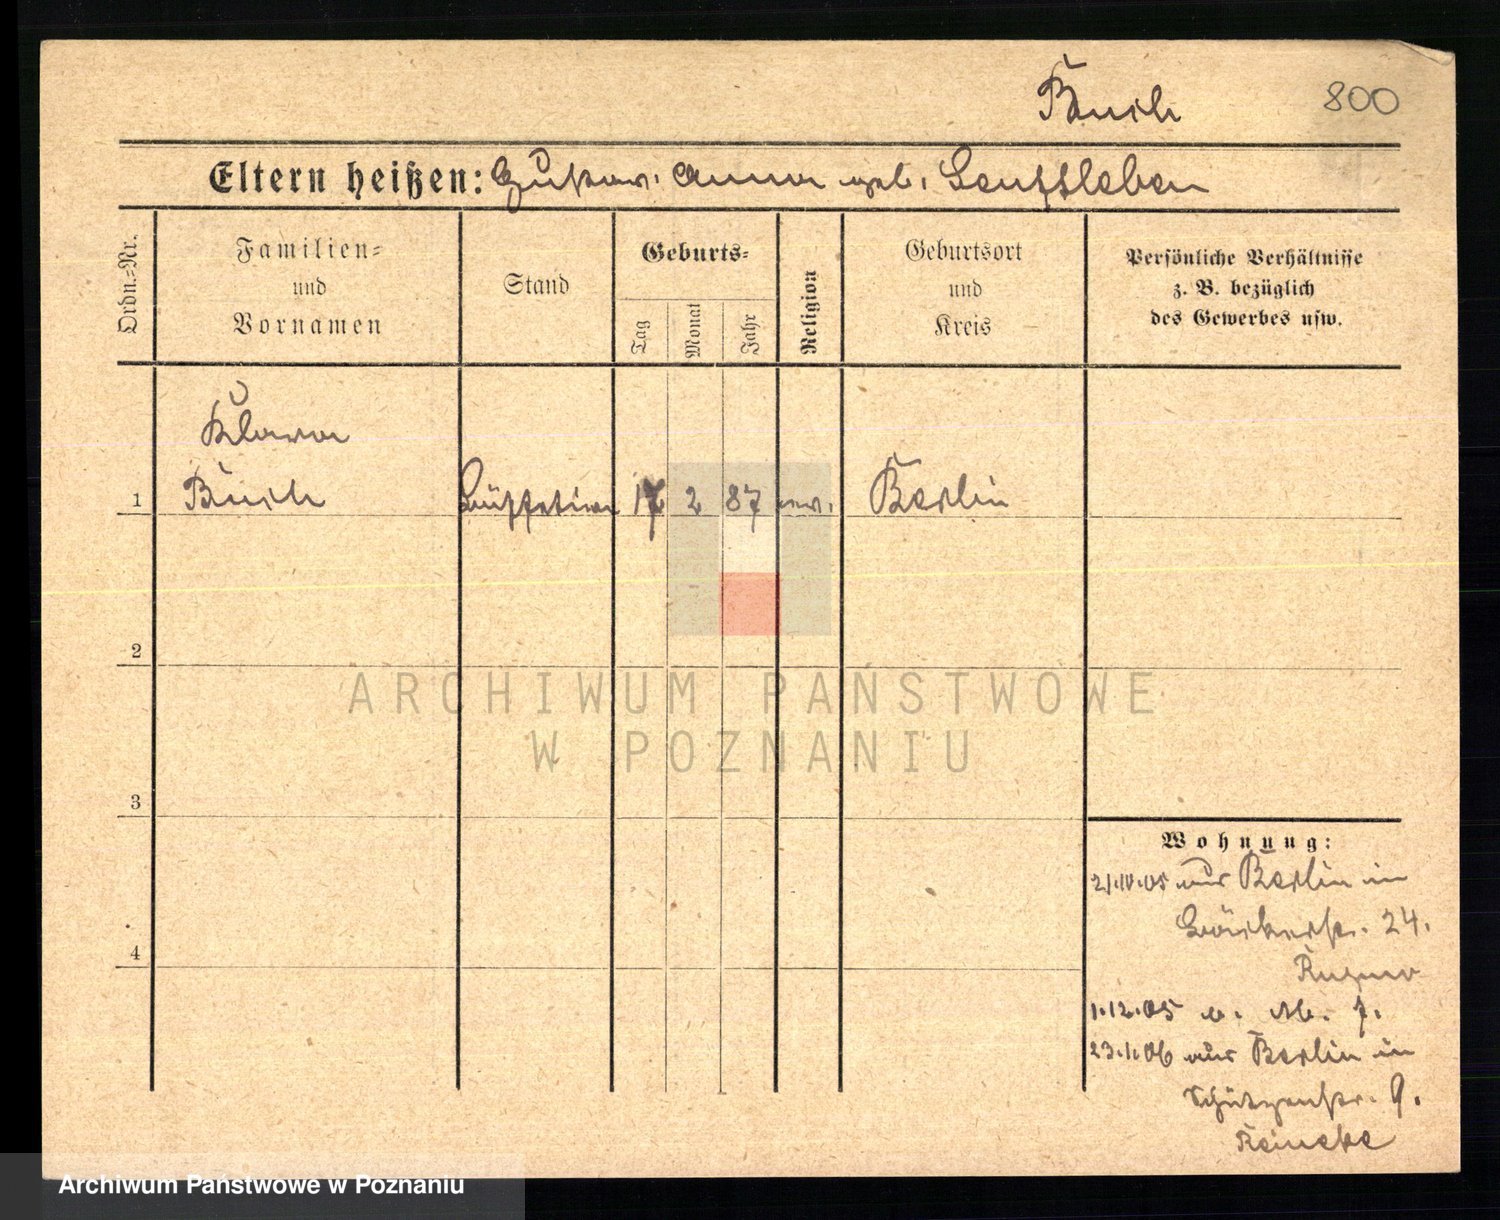 Busch
800
Eltern heißen: Gustav. Anna geb. Senftleben
Ordn.=Nr.
Familien=
und
Vornamen
Stand
Geburts=
Tag
Monat
Jahr
Religion
Geburtsort
und
Kreis
Persönliche Verhältnisse
z. B. bezüglich
des Gewerbes usw.
Klara
1 Busch 17 2 87 ev. Berlin
2
ARCHIWUM PAŃSTWOWE
W POZNANIU
3
Wohnung:
21.10.05 aus Berlin in
24.
4
1.12.05
23.1.06 aus Berlin in
Schützenstr. 9.
Reineke
Archiwum Państwowe w Poznaniu